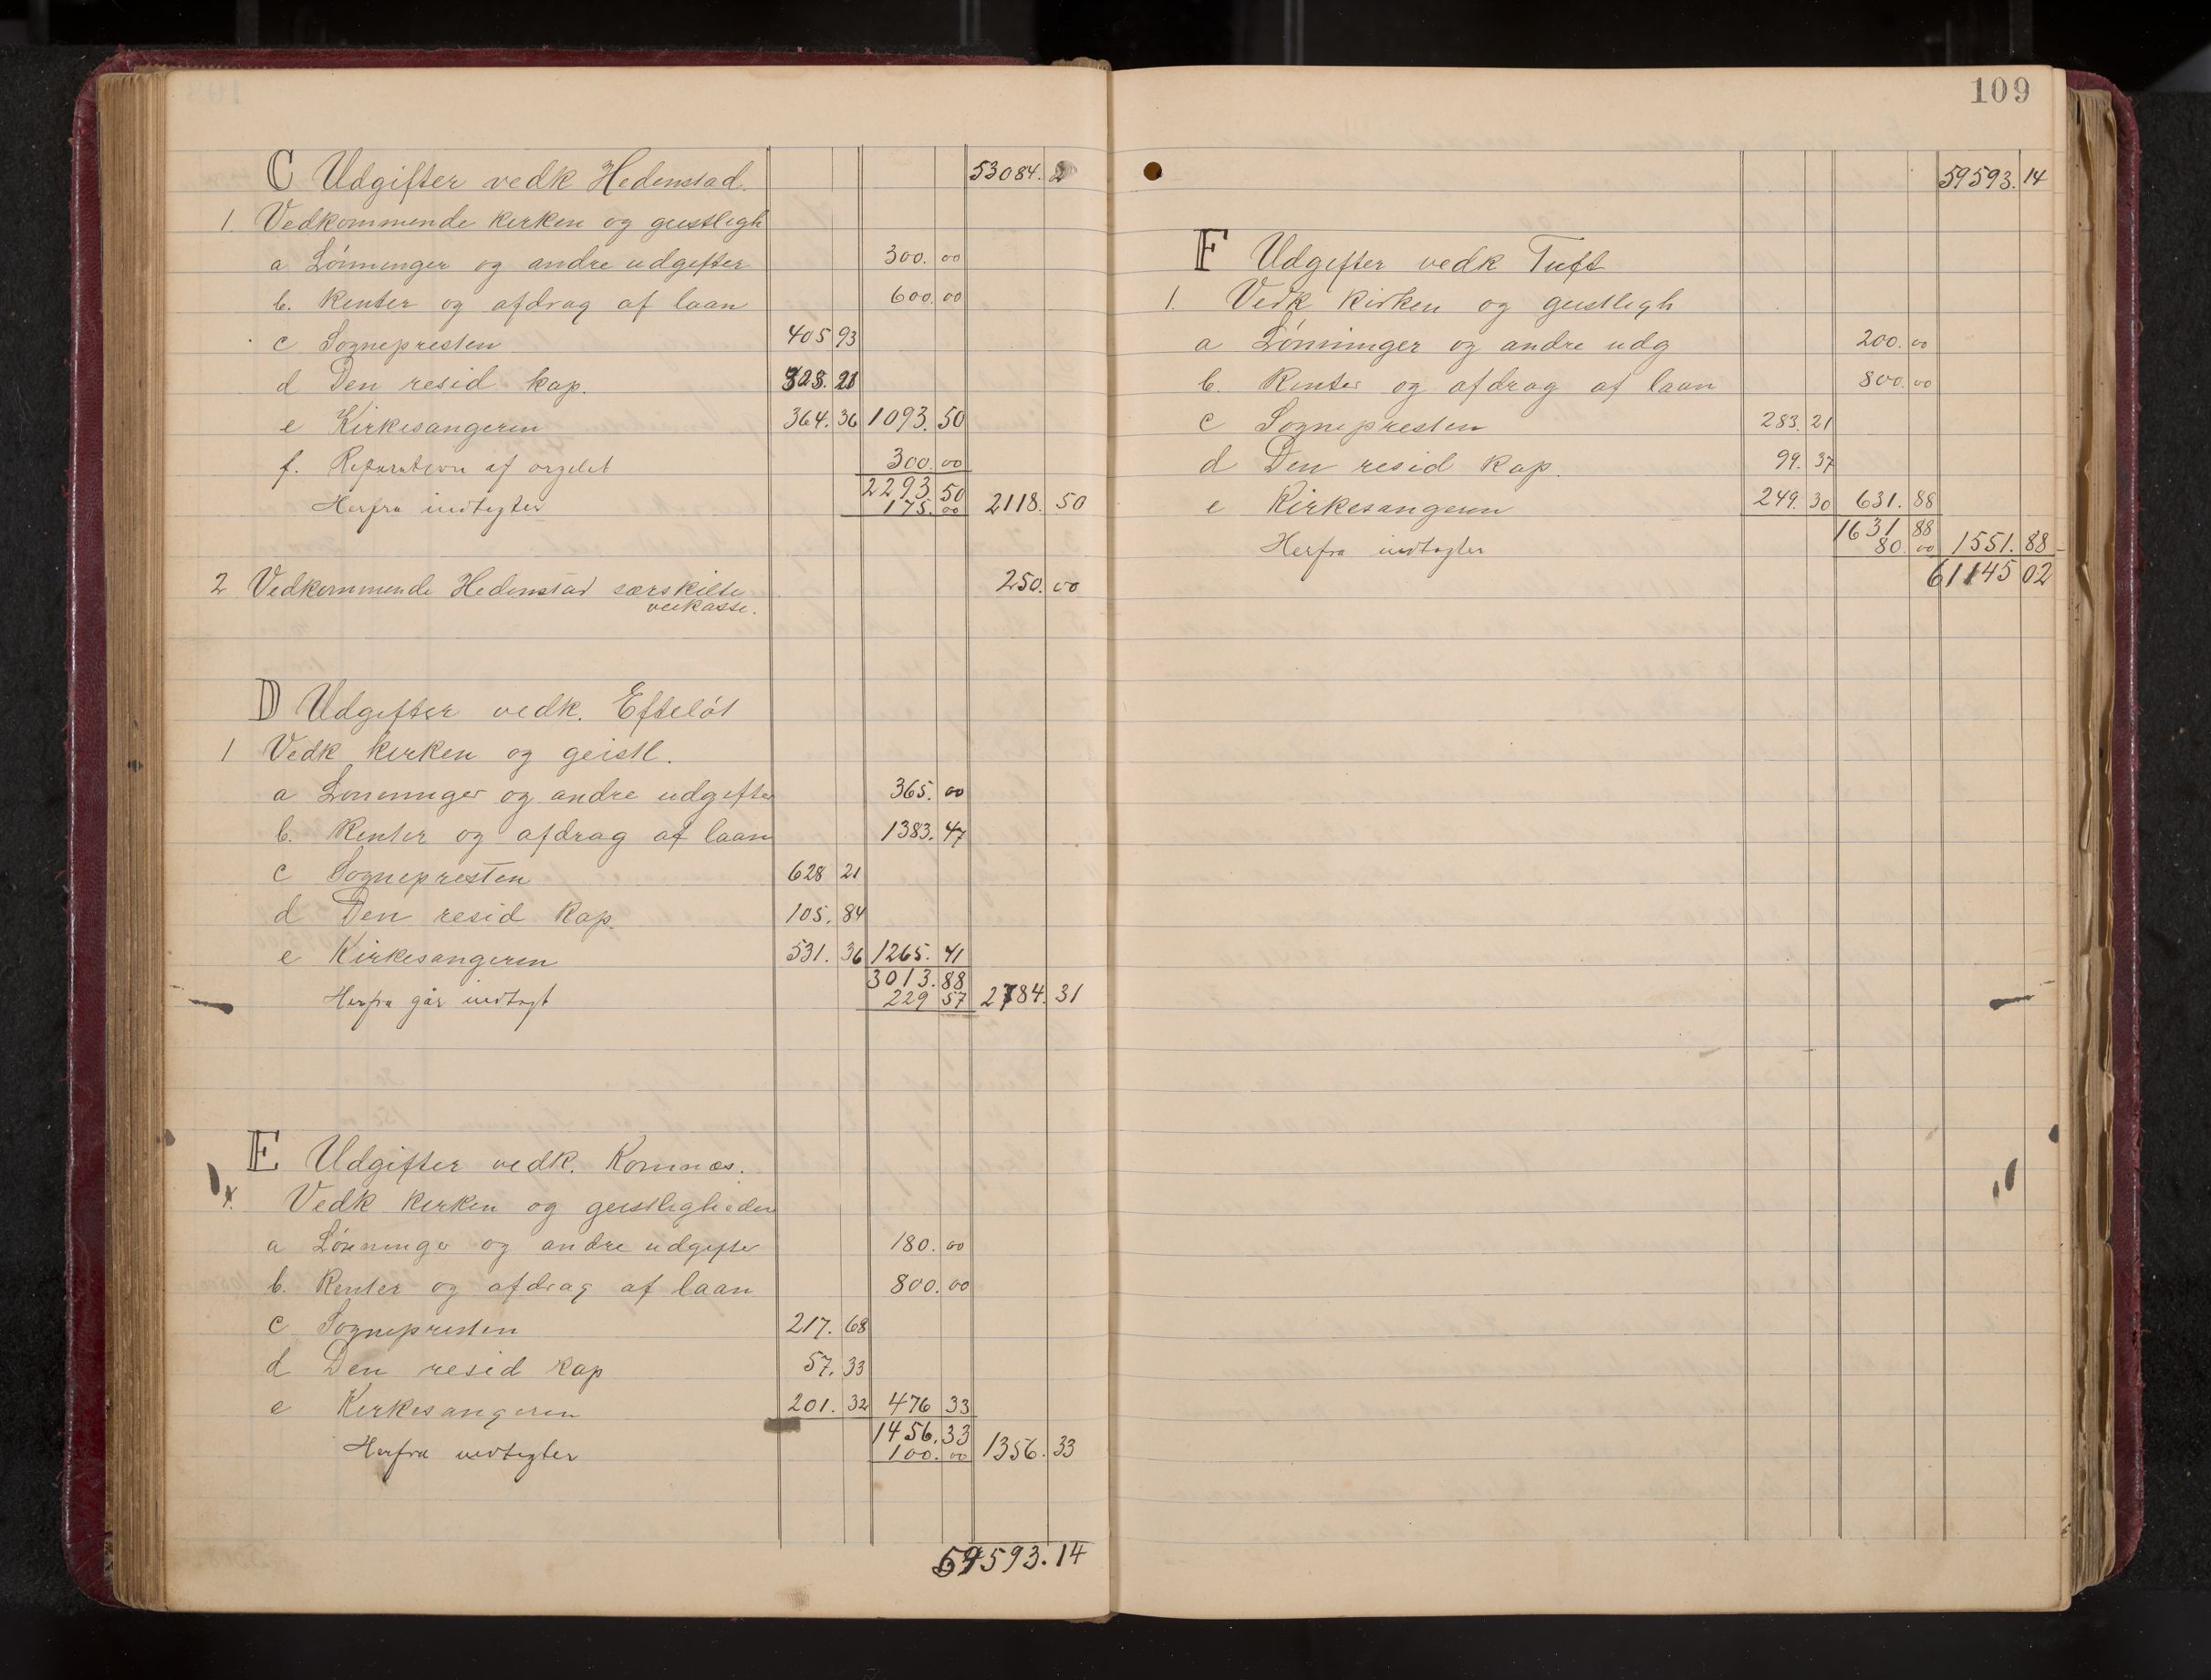 C Udgifter vedk Hedenstad. 53084.
1. Vedkommende kirken og geistligh
a Lønninger og andre udgifter 300.00
b. Renter og afdrag af laan 600.00
c Sognepresten 405 93
d Den resid kap. 323.21
e Kirkesangeren 364.36 1093.50
f. Reparation af orgelet 300.00
2293.50
Herfra indtægter 175.00 2118.50
2 Vedkommende Hedenstad særskilte 250.00
veikasse.
D Udgifter vedk. Efteløt
1 Vedk kirken og geistl.
a Lønninger og andre udgifter 365.00
b. Renter og afdrag af laan 1383.47
c Sognepresten 628 21
d Den resid kap. 105.84
e Kirkesangeren 531.36 1265.41
3013.88
Herfra går indtægt 229 57 2784.31
E Udgifter vedk. Komnæs.
1. Vedk kirken og geistligheden
a Lønninger og andre udgifter 180.00
b. Renter og afdrag af laan 800.00
c Sognepresten 217.68
d Den resid kap 57.33
e Kirkesangeren 201.32 476 33
1456.33
Herfra indtægter 100.00 1356.33
59593.14
109
59593.14
F Udgifter vedk Tuft
1. Vedk kirken og geistligh
a Lønninger og andre udg 200.00
b. Renter og afdrag af laan 800.00
c Sognepresten 283.21
d Den resid kap. 99.37
e Kirkesangeren 249.30 631.88
1631 88
Herfra indtægter 80.00 1551.88
61145 02